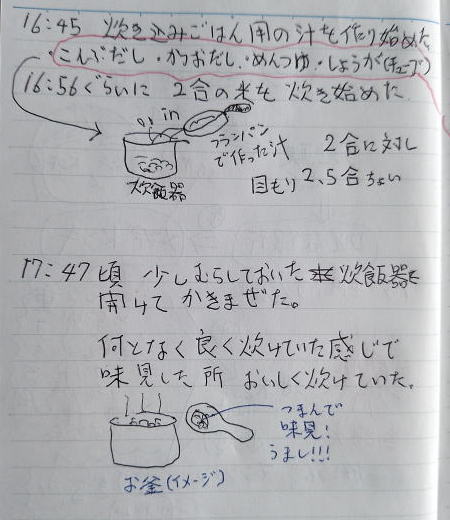 16:45 炊き込みごはん用の汁を作り始めた。
・こんぶだし・かつおだし・めんつゆ・しょうが(チューブ)
16:56ぐらいに 2合の米を炊き始めた
in
フランパン
で作った汁
炊飯器
2合に対し
目もり2.5合ちょい
17:47 頃 少しむらしておいた 炊飯器を
開けて かきまぜた。
何となく良く炊けていた感じで
味見した所 おいしく炊けていた。
つまんで
味見!
うまし!!!
お釜(イメージ)